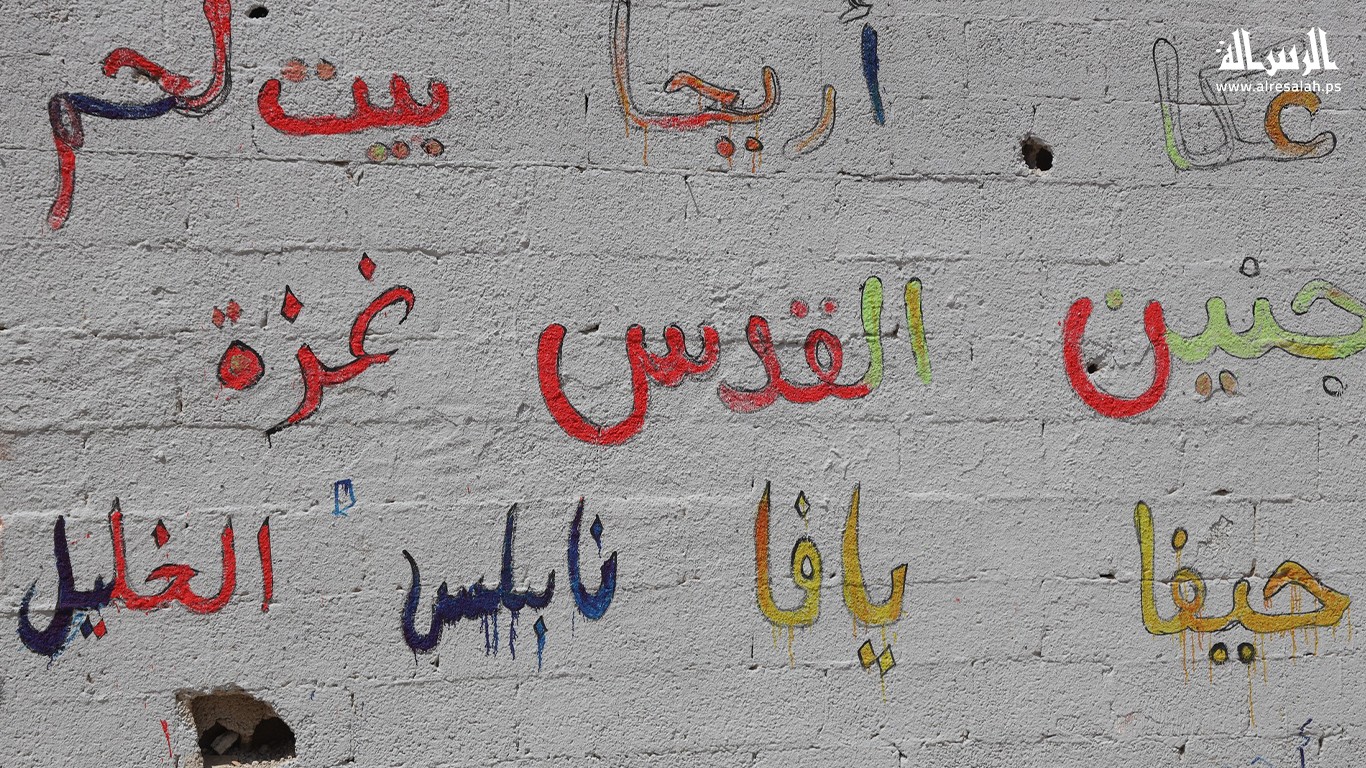 الرسالة
www.alresalah.ps
عكا أريحا بيت لحم
جنين القدس غزة
حيفا يافا نابلس الخليل